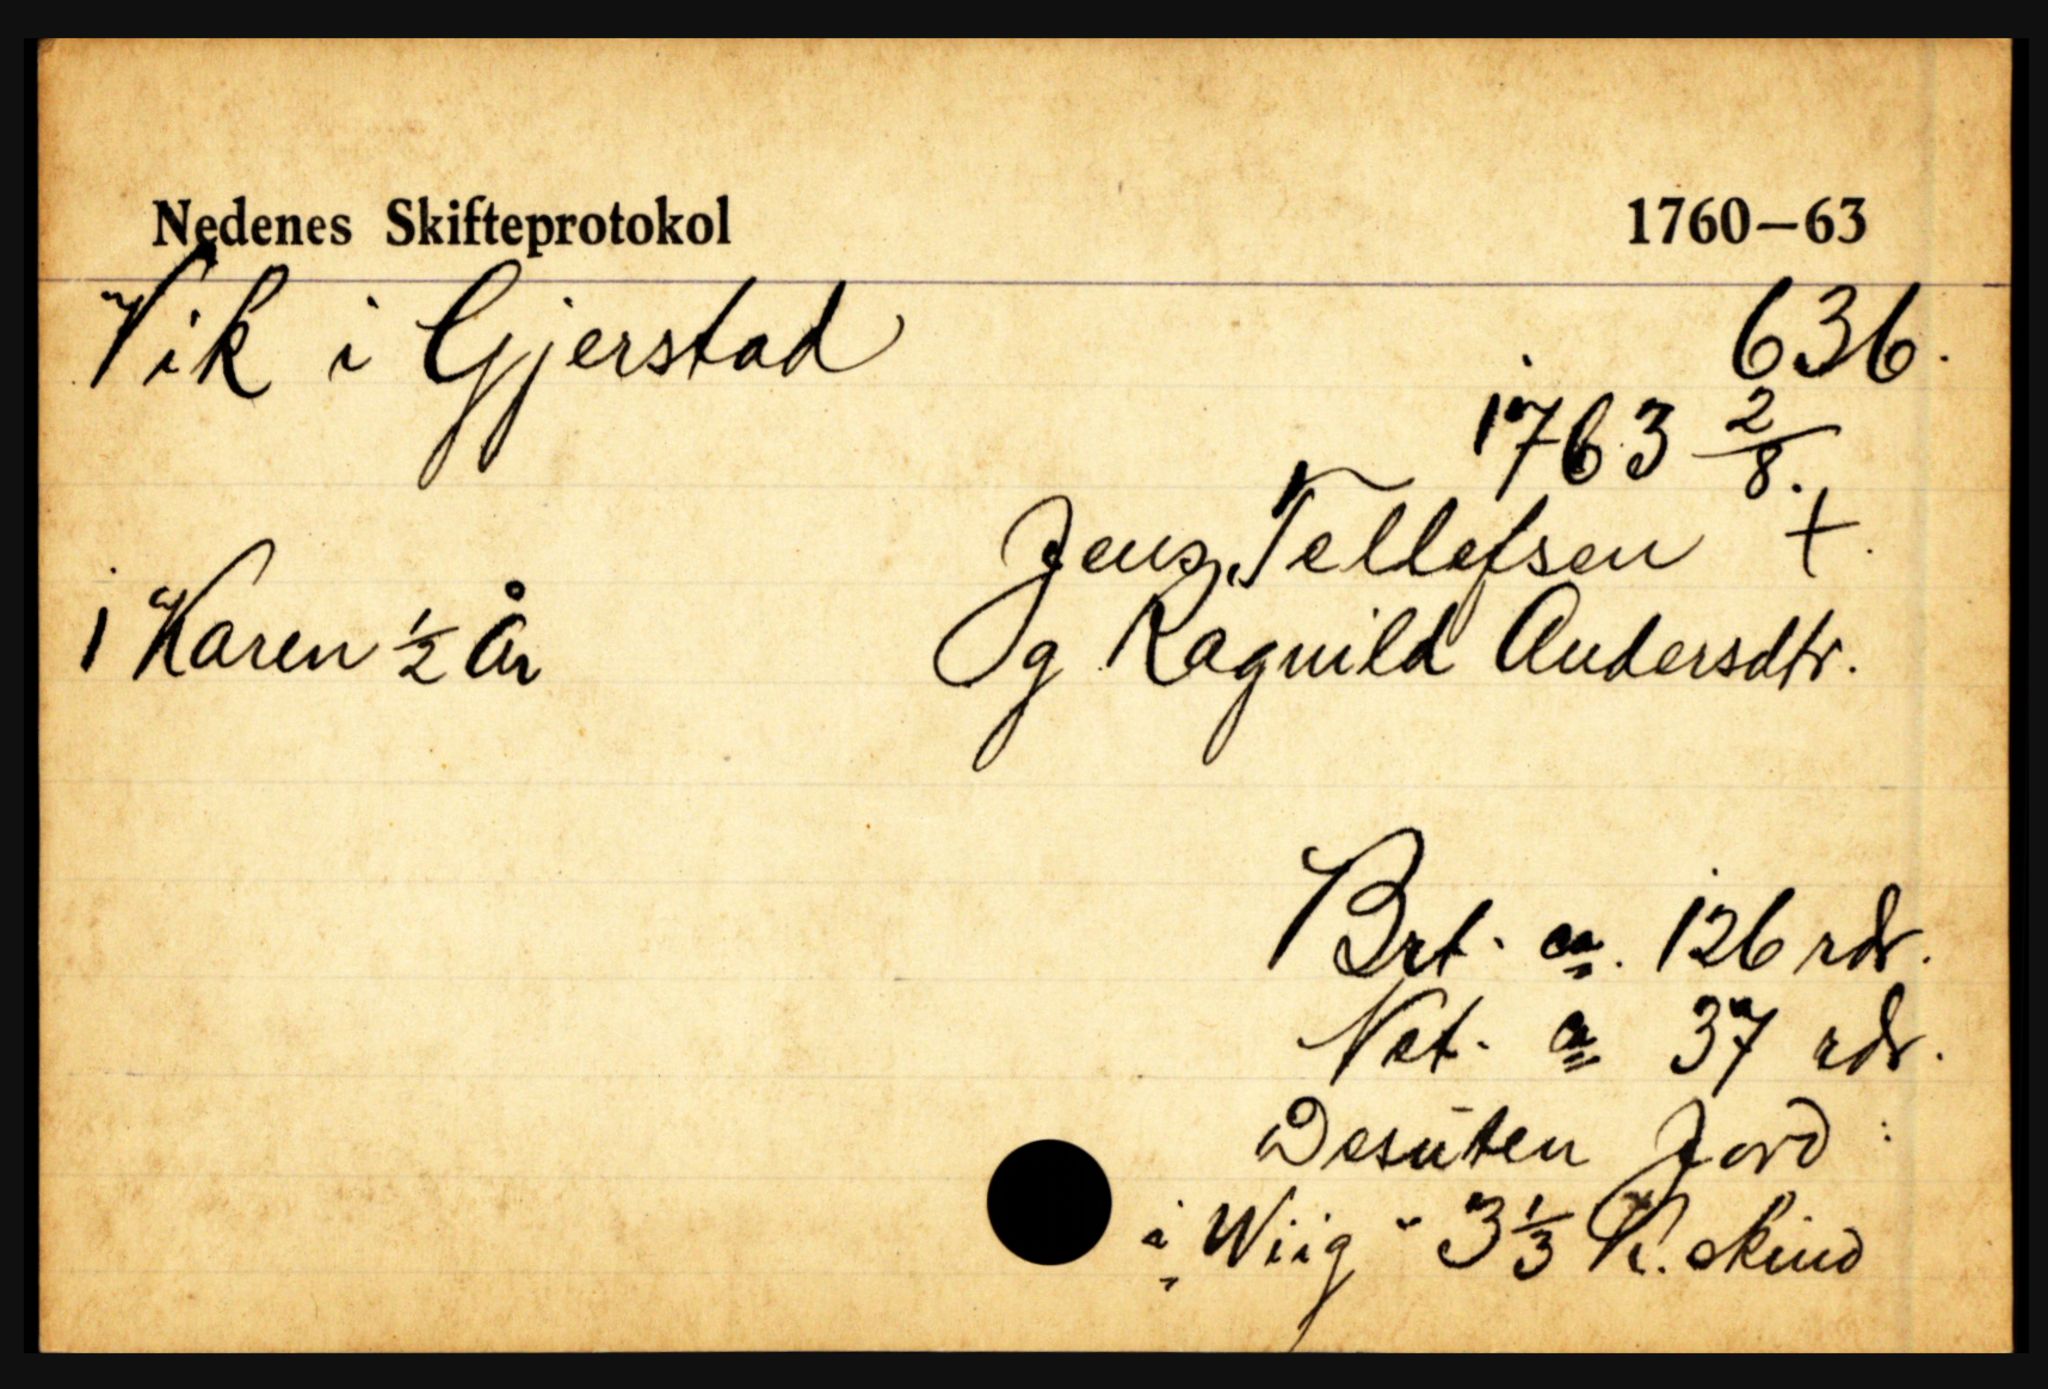 Nedenes Skifteprotokol 1760–63
Vik i Gjerstad 636.
1763 2/8.
Jens Tellefsen +.
1 Karen ½ År Og Ragnild Andersdtr.
Brt. ca. 126 rdr.
Net. ca 37 rdr.
Desuten Jord :
i Wiig " 3 1/3 K. skind